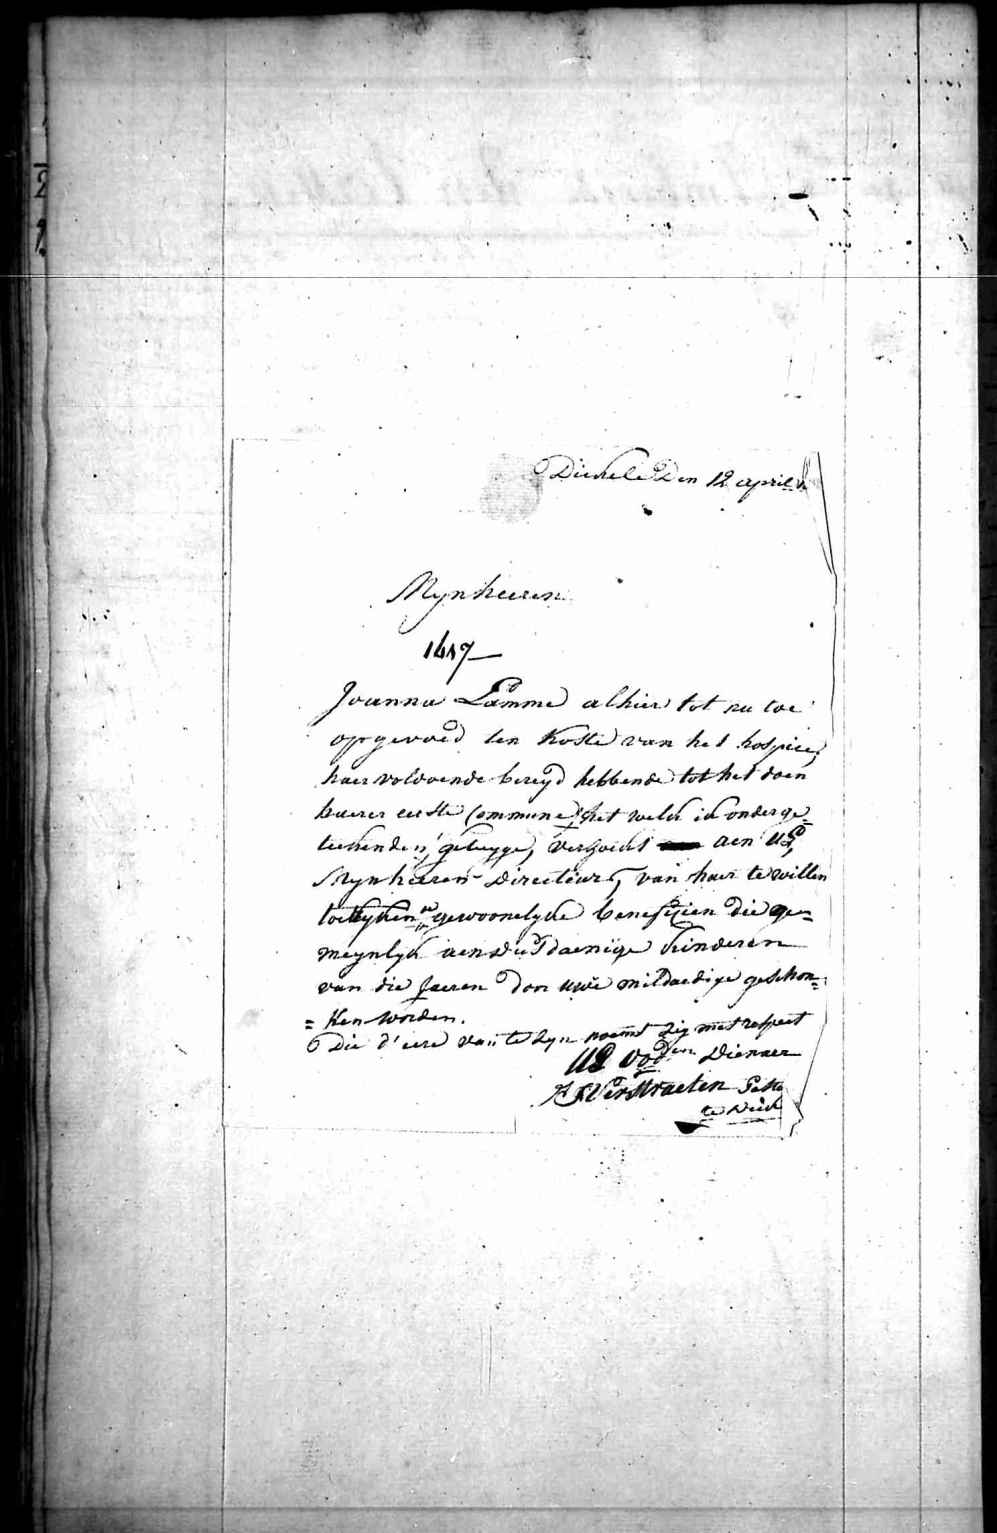 Dickele Den 12 april
Mynheeren
1417
Joanna Lamme alhier tot nu toe
opgevoed ten Koste van het hospice,
haer voldoende bereyd hebbende tot het doen
haerer eerste Commune, het welck ick onderge=
teekenden getuyge, versoeckt aen UE,
Mynheeren Directeurs, van haer te willen
toeleghen de gewoonelycke beneficien die ge=
meynlyck aen dusdaenige kinderen
van die Jaeren door uwe mildaedige geschon=
=ken worden.
Die d'eere van te zyn noemt zig met respect
UE ood.en Dienaer
Verstraeten Past.
te